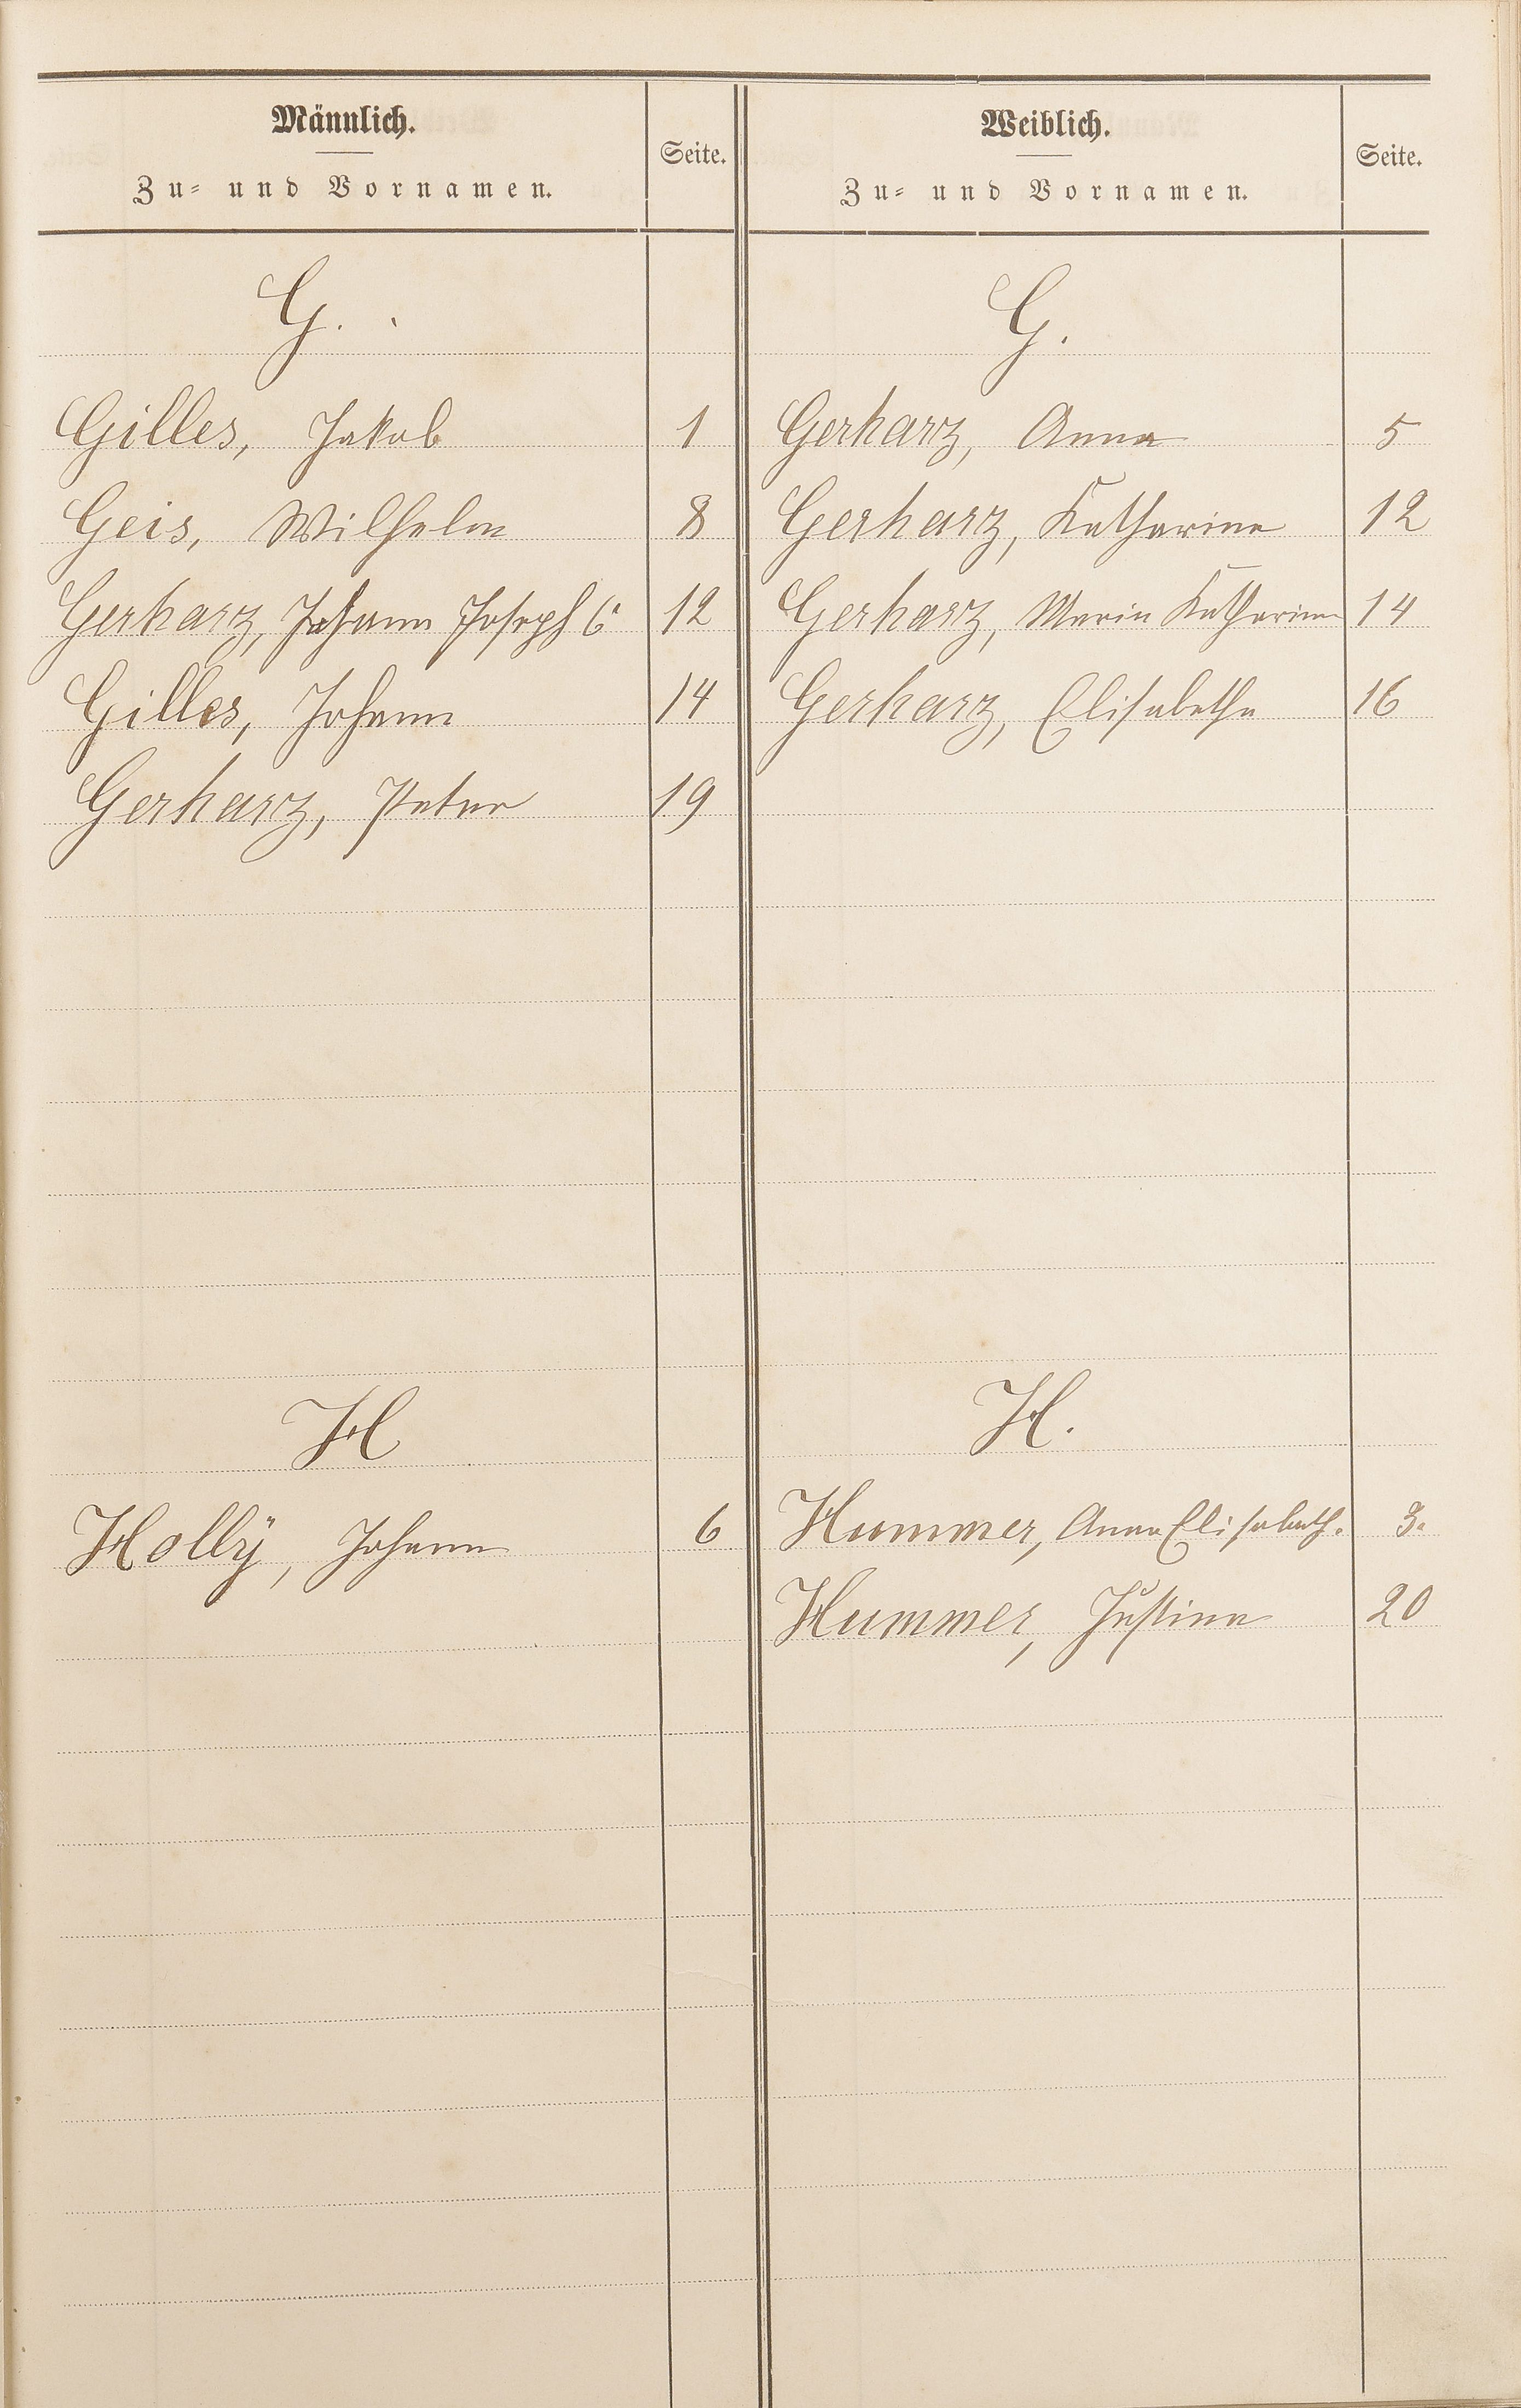 Männlich.
Zu- und Vornamen.
Seite.
Weiblich.
Zu- und Vornamen.
Seite.
G.
Gilles, Jakob 1
Geis, Wilhelm 8
Gerharz, Johann Joseph 6. 12
Gilles, Johann 14
Gerharz, Peter 19
H
Hollÿ, Johann 6
G.
Gerharz, Anna 5
Gerharz, Katharina 12
Gerharz, Maria Katharina 14
Gerharz, Elisabetha 16
H.
Hummer, Anna Elisabeth. 3.
Hummer, Justina 20